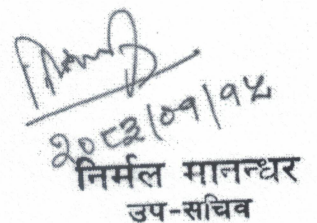 २०८३/०१/१५
निर्मल मानन्धर
उप-सचिव